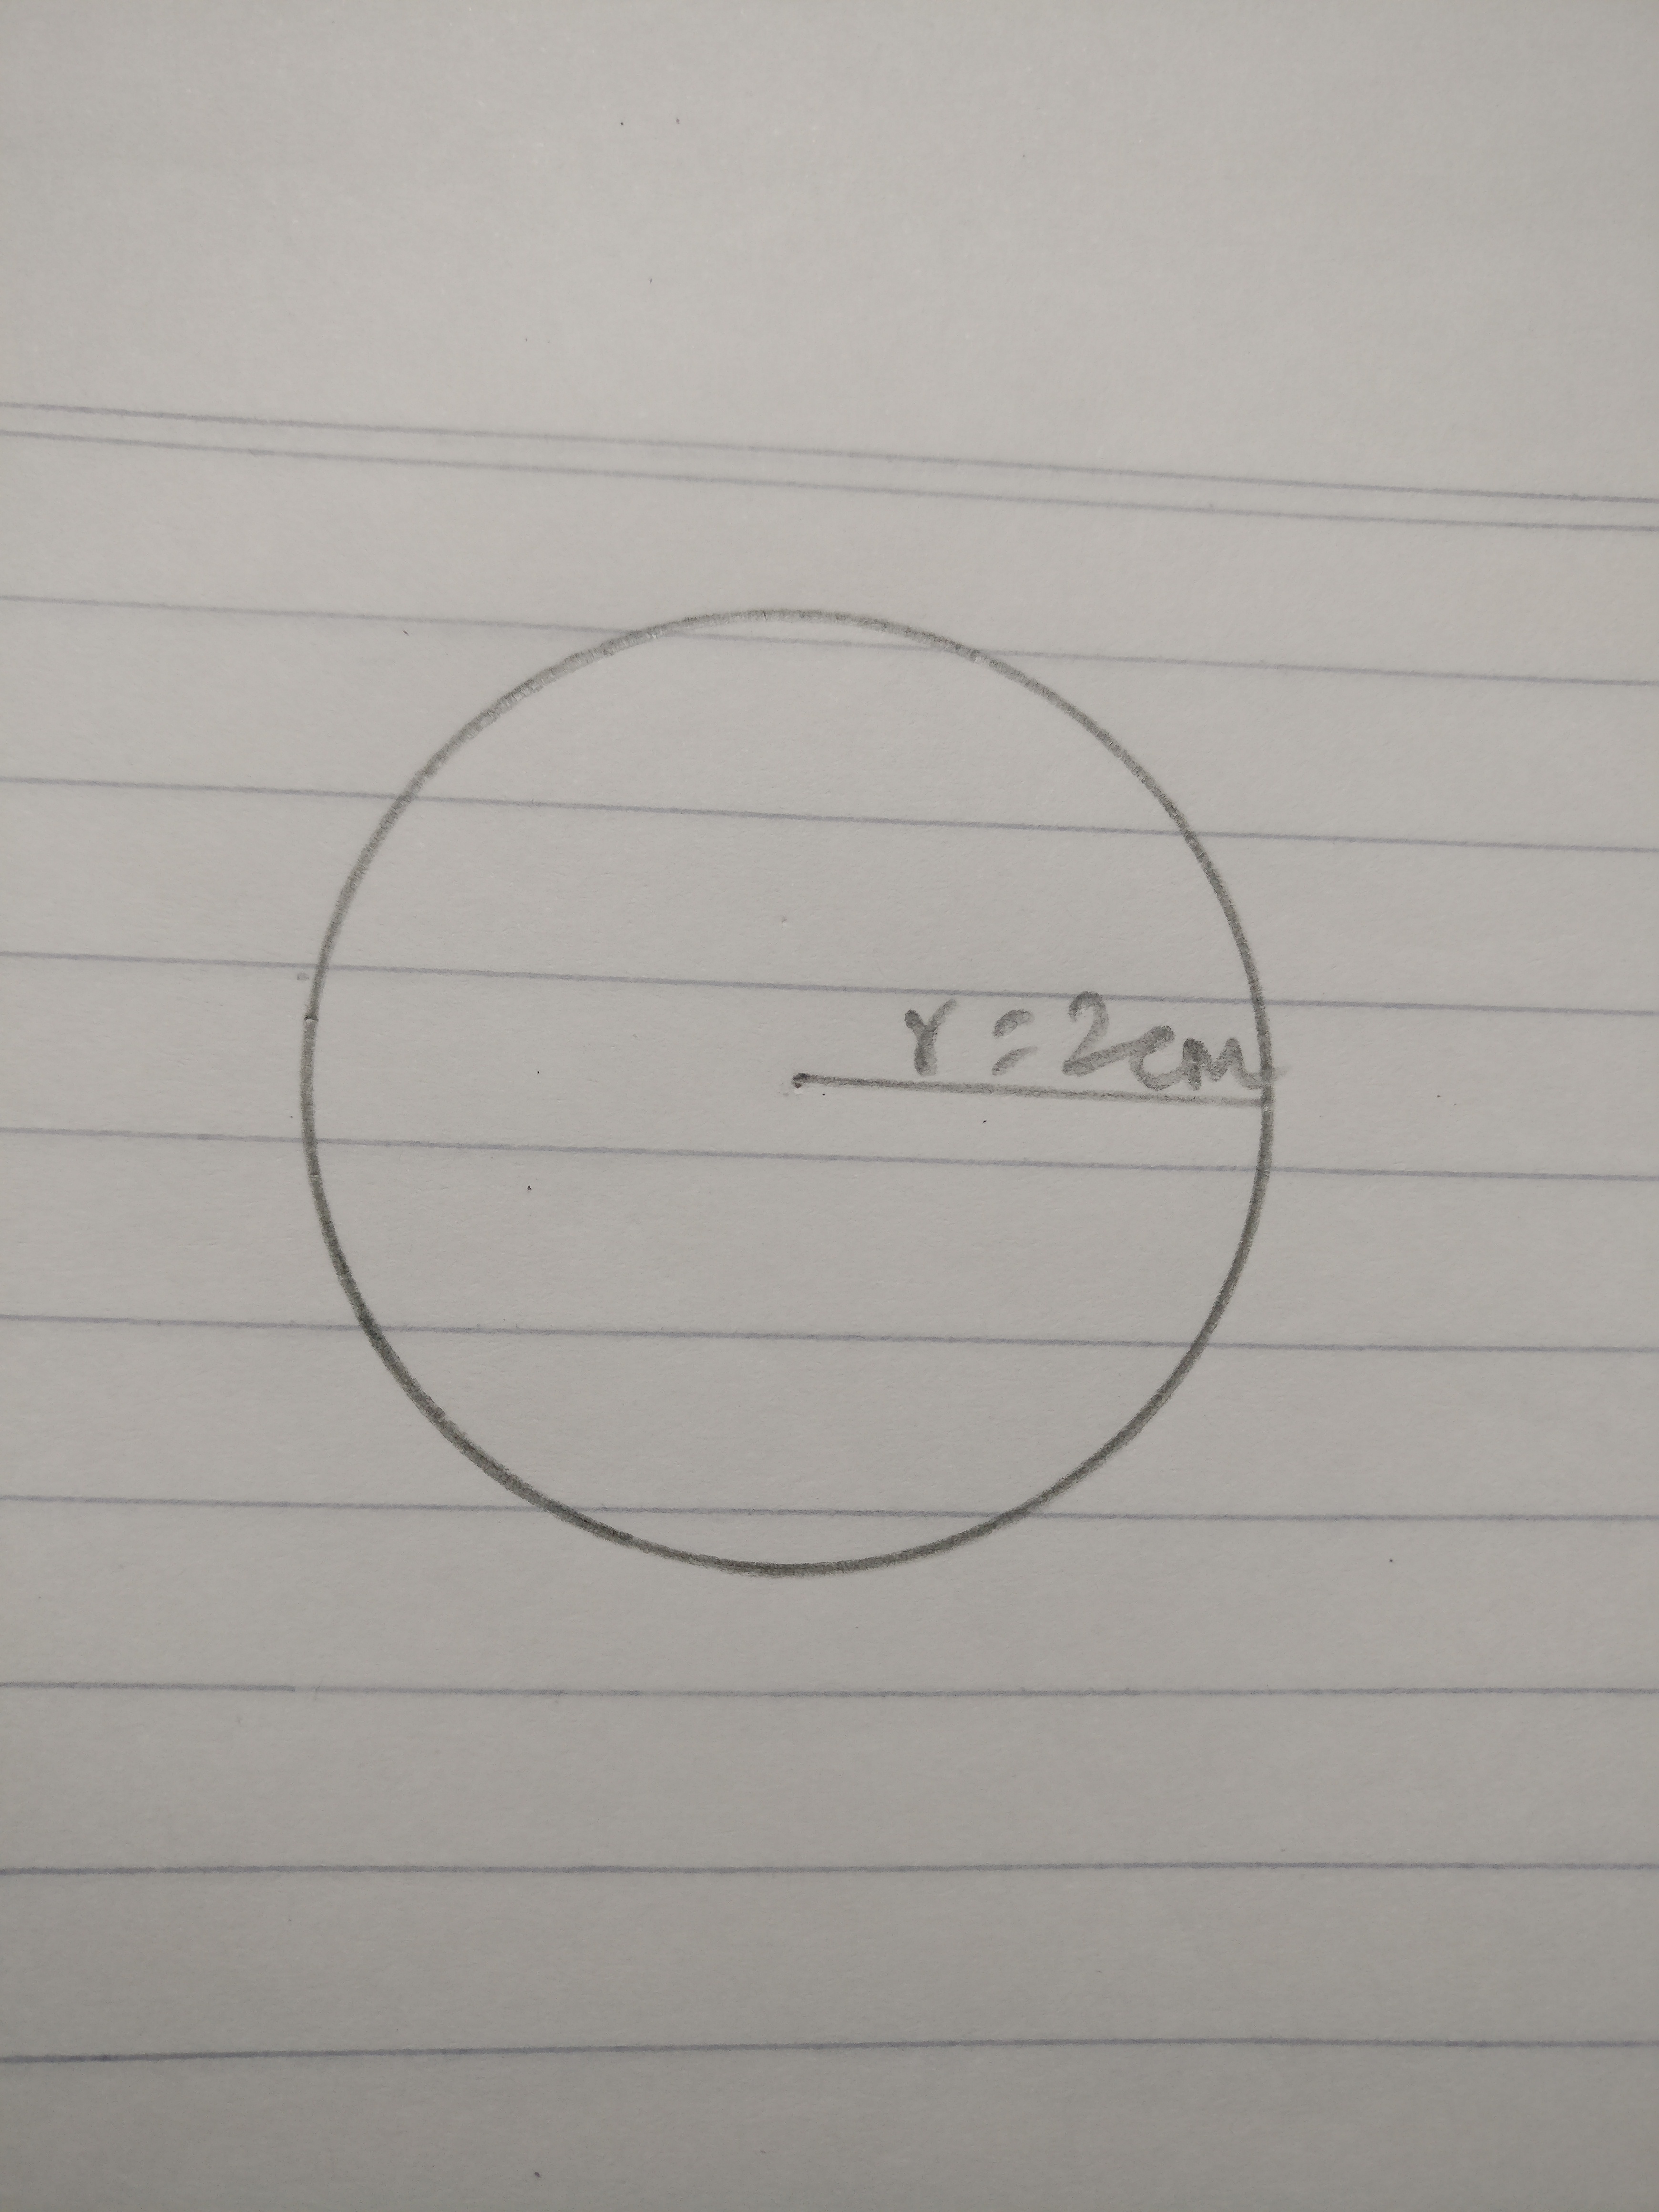 r = 2cm